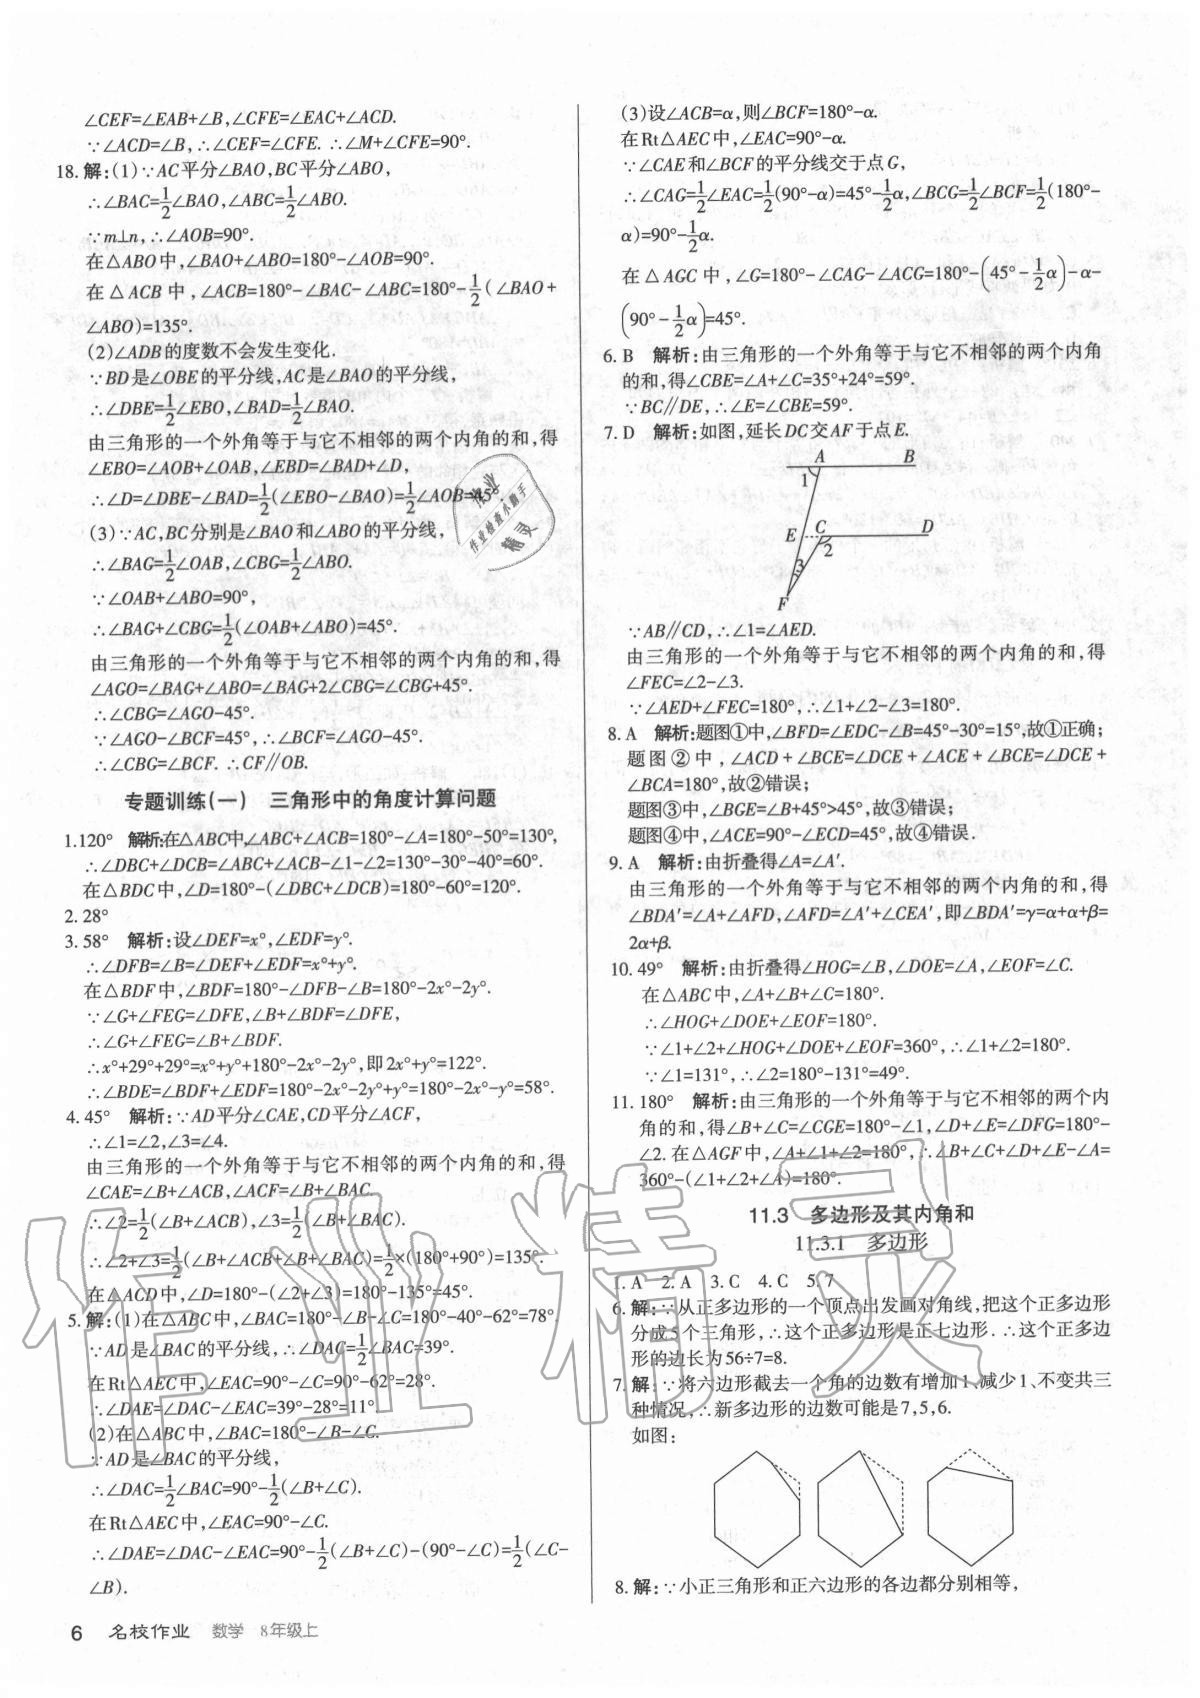 ∠CEF=∠EAB+∠B,∠CFE=∠EAC+∠ACD.
∵∠ACD=∠B,∴∠CEF=∠CFE. ∴∠M+∠CFE=90°.
18. 解:(1)∵AC平分∠BAO,BC平分∠ABO,
∴∠BAC=1/2∠BAO,∠ABC=1/2∠ABO.
∵m⊥n,∴∠AOB=90°.
在△ABO中,∠BAO+∠ABO=180°-∠AOB=90°.
在△ACB中,∠ACB=180°-∠BAC-∠ABC=180°-1/2(∠BAO+
∠ABO)=135°.
(2)∠ADB的度数不会发生变化.
∵BD是∠OBE的平分线,AC是∠BAO的平分线,
∴∠DBE=1/2∠EBO,∠BAD=1/2∠BAO.
由三角形的一个外角等于与它不相邻的两个内角的和,得
∠EBO=∠AOB+∠OAB,∠EBD=∠BAD+∠D,
∴∠D=∠DBE-∠BAD=1/2(∠EBO-∠BAO)=1/2∠AOB=45°.
(3)∵AC,BC分别是∠BAO和∠ABO的平分线,
∴∠BAG=1/2∠OAB,∠CBG=1/2∠ABO.
∵∠OAB+∠ABO=90°,
∴∠BAG+∠CBG=1/2(∠OAB+∠ABO)=45°.
由三角形的一个外角等于与它不相邻的两个内角的和,得
∠AGO=∠BAG+∠ABO=∠BAG+2∠CBG=∠CBG+45°.
∴∠CBG=∠AGO-45°.
∵∠AGO-∠BCF=45°,∴∠BCF=∠AGO-45°.
∴∠CBG=∠BCF. ∴CF∥OB.
专题训练(一) 三角形中的角度计算问题
1.120° 解析:在△ABC中,∠ABC+∠ACB=180°-∠A=180°-50°=130°,
∴∠DBC+∠DCB=∠ABC+∠ACB-∠1-∠2=130°-30°-40°=60°.
在△BDC中,∠D=180°-(∠DBC+∠DCB)=180°-60°=120°.
2. 28°
3. 58° 解析:设∠DEF=x°,∠EDF=y°.
∴∠DFB=∠B=∠DEF+∠EDF=x°+y°.
在△BDF中,∠BDF=180°-∠DFB-∠B=180°-2x°-2y°.
∵∠G+∠FEG=∠DFE,∠B+∠BDF=∠DFE,
∴∠G+∠FEG=∠B+∠BDF.
∴x°+29°+29°=x°+y°+180°-2x°-2y°,即2x°+y°=122°.
∴∠BDE=∠BDF+∠EDF=180°-2x°-2y°+y°=180°-2x°-y°=58°.
4. 45° 解析:∵AD平分∠CAE,CD平分∠ACF,
∴∠1=∠2,∠3=∠4.
由三角形的一个外角等于与它不相邻的两个内角的和,得
∠CAE=∠B+∠ACB,∠ACF=∠B+∠BAC.
∴∠2=1/2(∠B+∠ACB),∠3=1/2(∠B+∠BAC).
∴∠2+∠3=1/2(∠B+∠ACB+∠B+∠BAC)=1/2×(180°+90°)=135°.
在△ACD中,∠D=180°-(∠2+∠3)=180°-135°=45°.
5. 解:(1)在△ABC中,∠BAC=180°-∠B-∠C=180°-40°-62°=78°.
∵AD是∠BAC的平分线,∴∠DAC=1/2∠BAC=39°.
在Rt△AEC中,∠EAC=90°-∠C=90°-62°=28°.
∴∠DAE=∠DAC-∠EAC=39°-28°=11°.
(2)在△ABC中,∠BAC=180°-∠B-∠C.
∵AD是∠BAC的平分线,
∴∠DAC=1/2∠BAC=90°-1/2(∠B+∠C).
在Rt△AEC中,∠EAC=90°-∠C.
∴∠DAE=∠DAC-∠EAC=90°-1/2(∠B+∠C)-(90°-∠C)=1/2(∠C-
∠B).
(3)设∠ACB=α,则∠BCF=180°-α.
在Rt△AEC中,∠EAC=90°-α.
∵∠CAE和∠BCF的平分线交于点G,
∴∠CAG=1/2∠EAC=1/2(90°-α)=45°-1/2α,∠BCG=1/2∠BCF=1/2(180°-
α)=90°-1/2α.
在△AGC中,∠G=180°-∠CAG-∠ACG=180°-(45°-1/2α)-α-
(90°-1/2α)=45°.
6. B 解析:由三角形的一个外角等于与它不相邻的两个内角
的和,得∠CBE=∠A+∠C=35°+24°=59°.
∵BC∥DE,∴∠E=∠CBE=59°.
7. D 解析:如图,延长DC交AF于点E.
A B
1
E C D
2
3
F
∵AB∥CD,∴∠1=∠AED.
由三角形的一个外角等于与它不相邻的两个内角的和,得
∠FEC=∠2-∠3.
∵∠AED+∠FEC=180°,∴∠1+∠2-∠3=180°.
8. A 解析:题图①中,∠BFD=∠EDC-∠B=45°-30°=15°,故①正确;
题图②中,∠ACD+∠BCE=∠DCE+∠ACE+∠BCE=∠DCE+
∠BCA=180°,故②错误;
题图③中,∠BGE=∠B+45°>45°,故③错误;
题图④中,∠ACE=90°-∠ECD=45°,故④错误.
9. A 解析:由折叠得∠A=∠A′.
由三角形的一个外角等于与它不相邻的两个内角的和,得
∠BDA′=∠A+∠AFD,∠AFD=∠A′+∠CEA′,即∠BDA′=γ=α+α+β=
2α+β.
10. 49° 解析:由折叠得∠HOG=∠B,∠DOE=∠A,∠EOF=∠C.
在△ABC中,∠A+∠B+∠C=180°.
∴∠HOG+∠DOE+∠EOF=180°.
∵∠1+∠2+∠HOG+∠DOE+∠EOF=360°,∴∠1+∠2=180°.
∵∠1=131°,∴∠2=180°-131°=49°.
11. 180° 解析:由三角形的一个外角等于与它不相邻的两个内
角的和,得∠B+∠C=∠CGE=180°-∠1,∠D+∠E=∠DFG=180°-
∠2. 在△AGF中,∠A+∠1+∠2=180°,∴∠B+∠C+∠D+∠E+∠A=
360°-(∠1+∠2+∠A)=180°.
11.3 多边形及其内角和
11.3.1 多边形
1. A 2. A 3. C 4. C 5. 7
6. 解:∵从正多边形的一个顶点出发画对角线,把这个正多边形
分成5个三角形,∴这个正多边形是正七边形. ∴这个正多边
形的边长为56÷7=8.
7. 解:∵将六边形截去一个角的边数有增加1、减少1、不变共三
种情况,∴新多边形的边数可能是7,5,6.
如图:
8. 解:∵小正三角形和正六边形的各边都分别相等,
6 名校作业 数学 8年级上
作业精灵
作业检查小助手
精灵